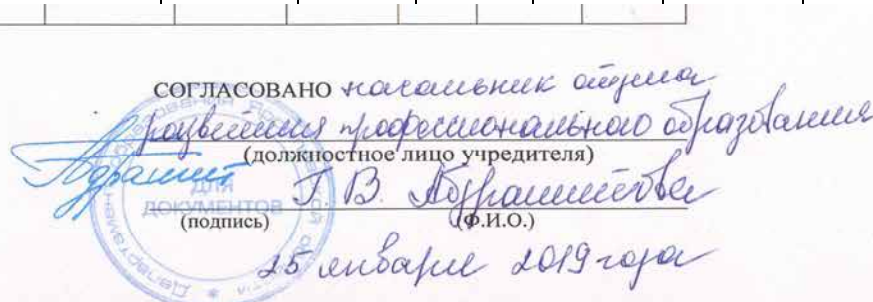 СОГЛАСОВАНО начальник отдела
развития профессионального образования
(должностное лицо учредителя)
Г. В. Абдрашитова
ДЛЯ
ДОКУМЕНТОВ
(подпись) (Ф.И.О.)
25 января 2019 года